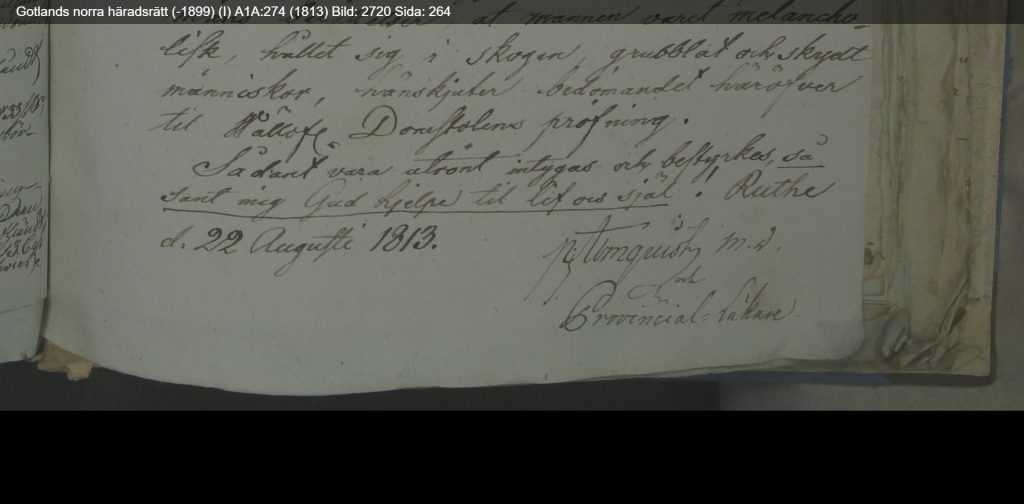 Gotlands norra häradsrätt (-1899) (I) A1A:274 (1813) Bild: 2720 Sida: 264
at mannen varit melancho-
lisk, hållet sig i skogen, grubblat och skydt
människor, hänskjuter bedömandet häröfver
til Wällofl. Domstolens pröfning.
Sådant vara utrönt intygas och bestyrkes, så
sant mig Gud hjelpe til lif och själ! Ruthe
d: 22 Augusti 1813.
M. D.
och
Provincial-Läkare